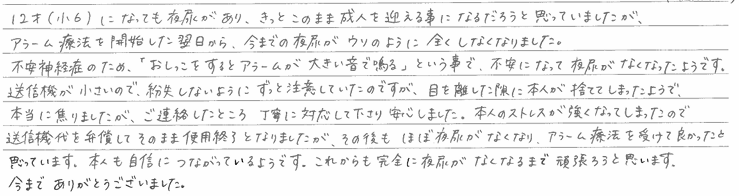 12才(小6)になっても夜尿があり、きっとこのまま成人を迎える事になるだろうと思っていましたが、
アラーム療法を開始した翌日から、今までの夜尿がウソのように全くしなくなりました。
不安神経症のため、「おしっこをするとアラームが大きい音で鳴る」という事で、不安になって夜尿がなくなったようです。
送信機が小さいので、紛失しないようにずっと注意していたのですが、目を離した隙に本人が捨ててしまったようで、
本当に焦りましたが、ご連絡したところ丁寧に対応して下さり安心しました。本人のストレスが強くなってしまったので
送信機代を弁償してそのまま使用終了となりましたが、その後もほぼ夜尿がなくなり、アラーム療法を受けて良かったと
思っています。本人も自信につながっているようです。これからも完全に夜尿がなくなるまで頑張ろうと思います。
今までありがとうございました。